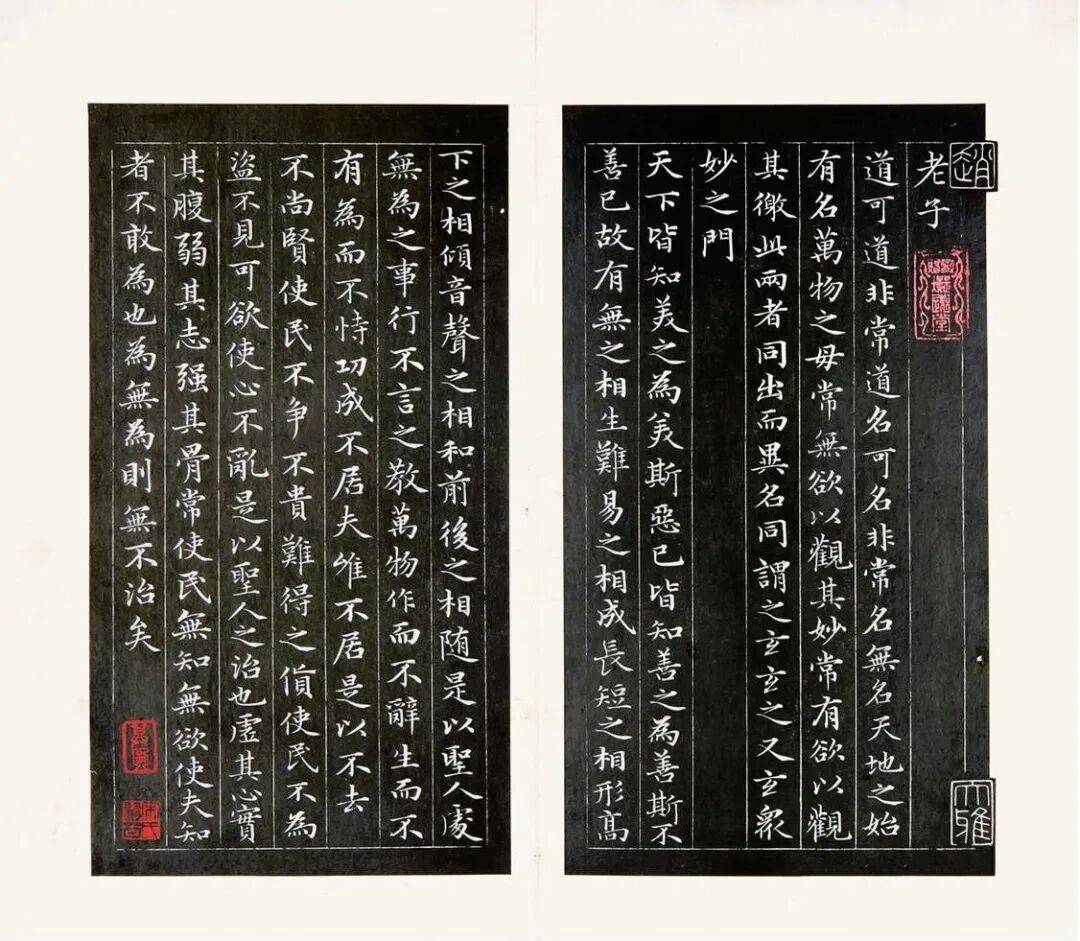 老子
道可道非常道名可名非常名無名天地之始
有名萬物之母常無欲以觀其妙常有欲以觀
其徼此兩者同出而異名同謂之玄玄之又玄眾
妙之門
天下皆知美之為美斯惡已皆知善之為善斯不
善已故有無之相生難易之相成長短之相形高
下之相傾音聲之相和前後之相随是以聖人處
無為之事行不言之教萬物作而不辭生而不
有為而不恃功成不居夫惟不居是以不去
不尚賢使民不争不貴難得之貨使民不為
盜不見可欲使心不亂是以聖人之治也虛其心實
其腹弱其志强其骨常使民無知無欲使夫知
者不敢為也為無為則無不治矣
趙
大雅